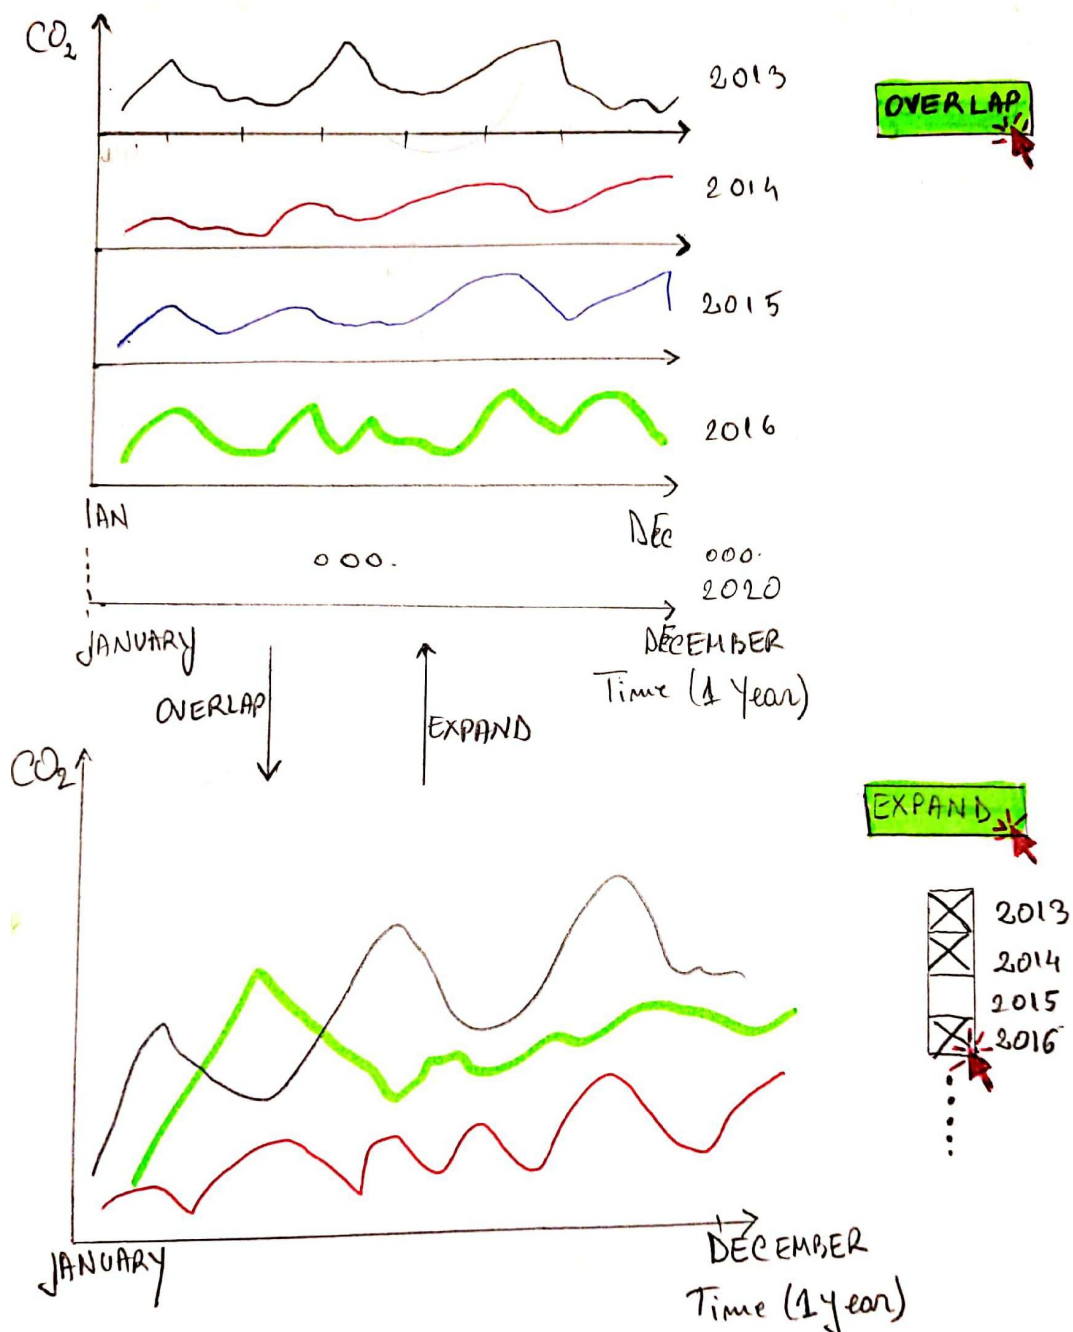 CO2
2013
OVERLAP
2014
2015
2016
JAN
DEC
ooo.
ooo.
2020
JANUARY
DECEMBER
Time (1 Year)
OVERLAP
EXPAND
CO2
EXPAND
2013
2014
2015
2016
JANUARY
DECEMBER
Time (1 year)